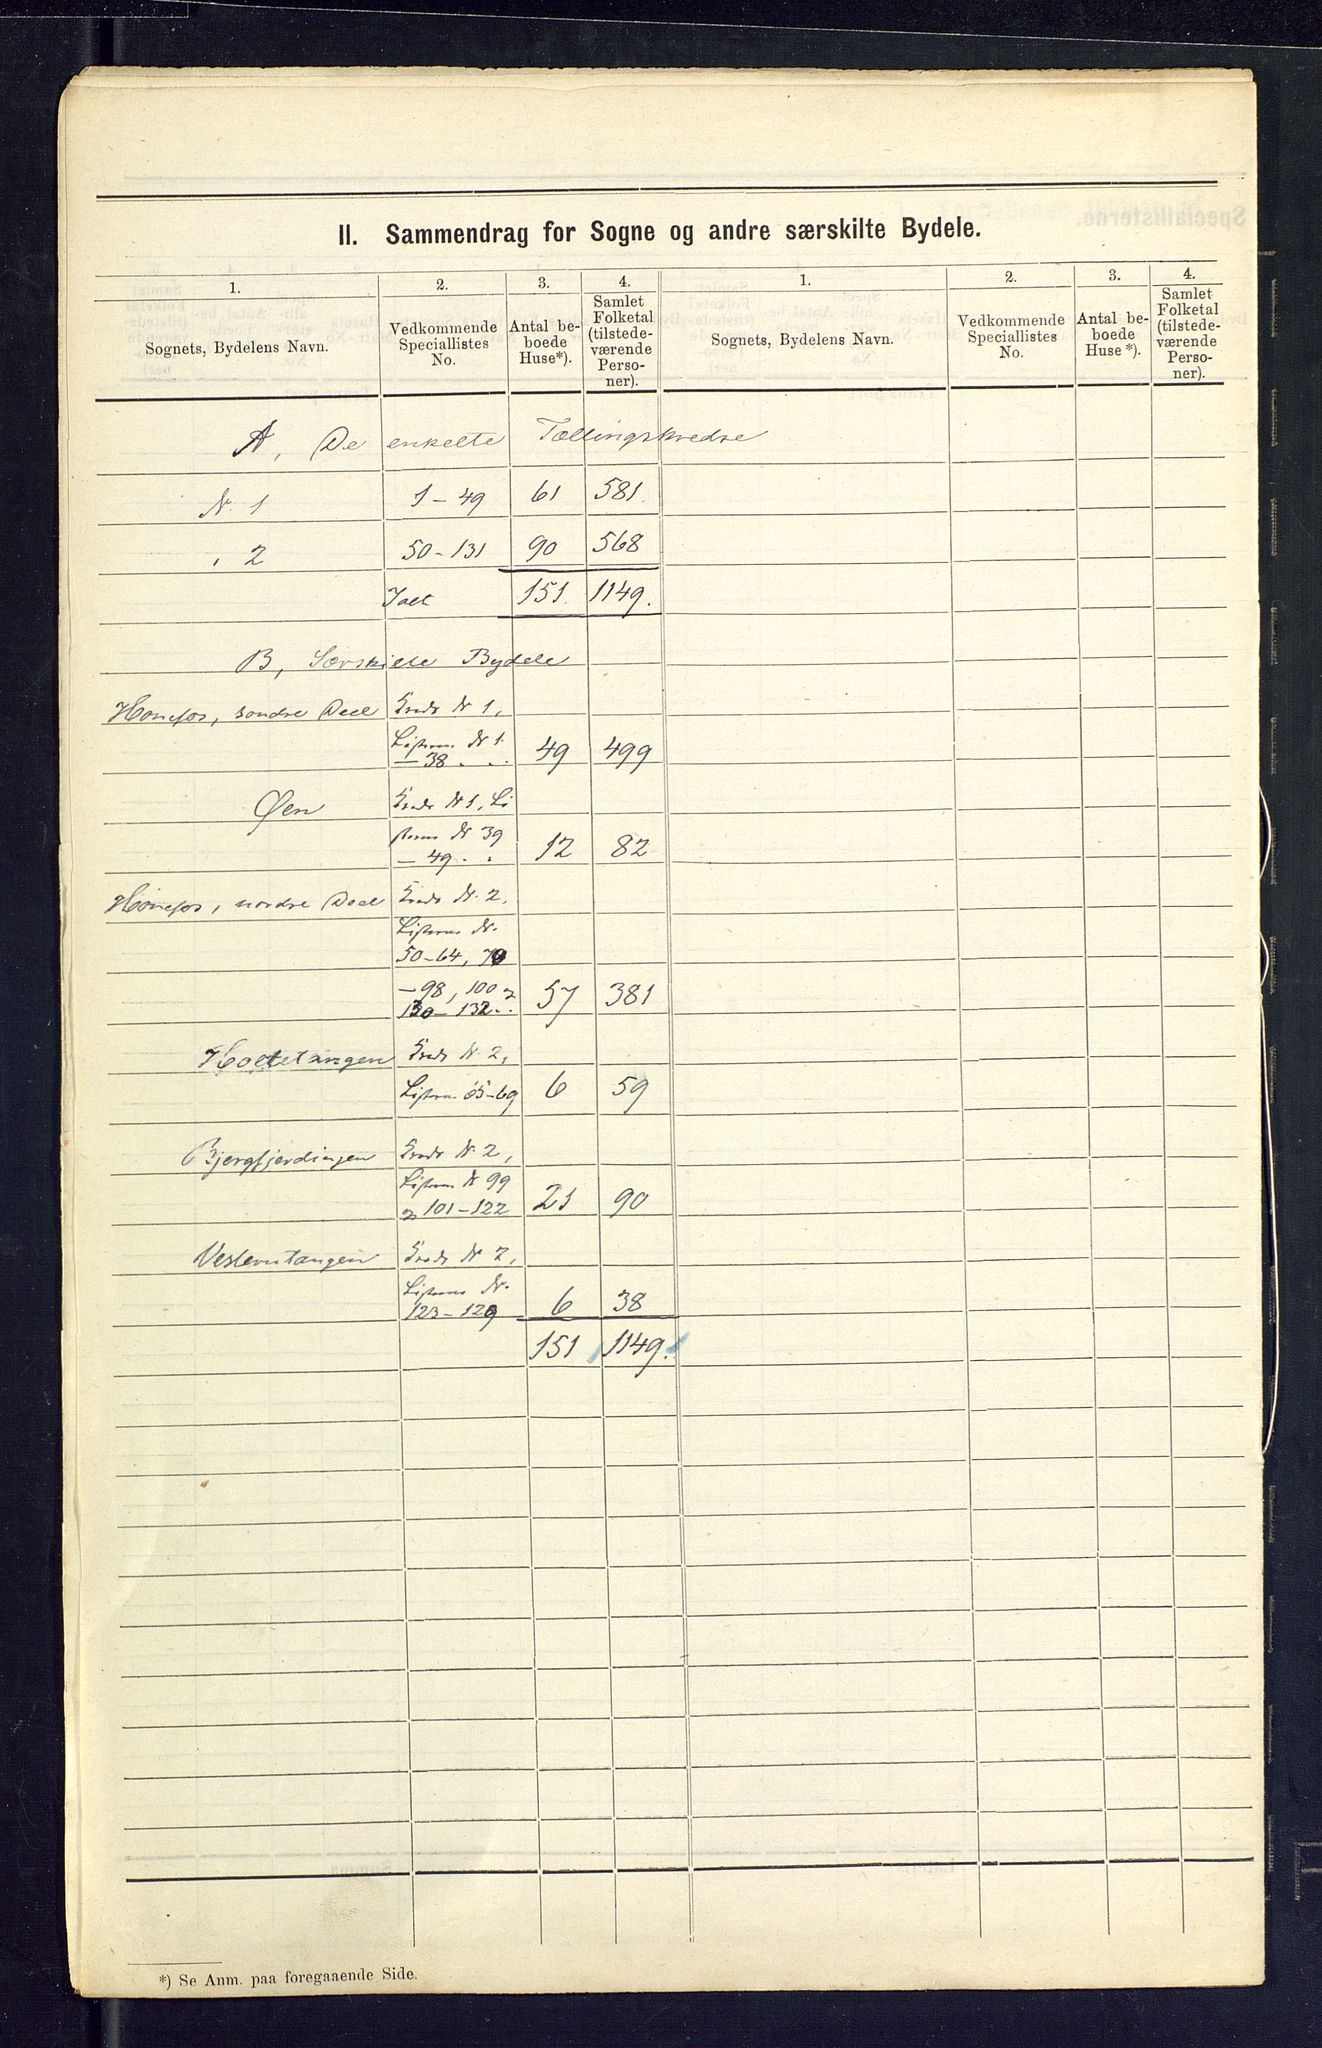 II. Sammendrag for Sogne og andre særskilte Bydele.
1. 2. 3. 4. 1. 2. 3. 4.
Sognets, Bydelens Navn. Vedkommende Speciallistes No. Antal beboede Huse*). Samlet Folketal (tilstedeværende Personer). Sognets, Bydelens Navn. Vedkommende Speciallistes No. Antal beboede Huse*). Samlet Folketal (tilstedeværende Personer).
A, De enkelte Tællingskredse
N. 1 1-49 61 581.
" 2 50-131 90 568
Ialt 151. 1149.
B, Særskilte Bydele
Hønefos, søndre Deel Kreds Nr 1,
Listerne Nr 1.
-38 . . 49 499
Øen Kreds Nr 1, Li
sterne Nr 39
-49 . . 12 82
Hønefos, nordre Deel Kreds Nr. 2.
Listerne Nr.
50-64, 70
-98, 100 og
130-132 . . 57 381
Holtetangen Kreds Nr 2,
Listerne 65-69 6 59
Bjergfjerdingen Kreds Nr. 2,
Listerne Nr 99
og 101-122 21 90
Vesterntangen Kreds Nr 2,
Listerne Nr.
123-129 6 38
151 1149.
*) Se Anm. paa foregaaende Side.